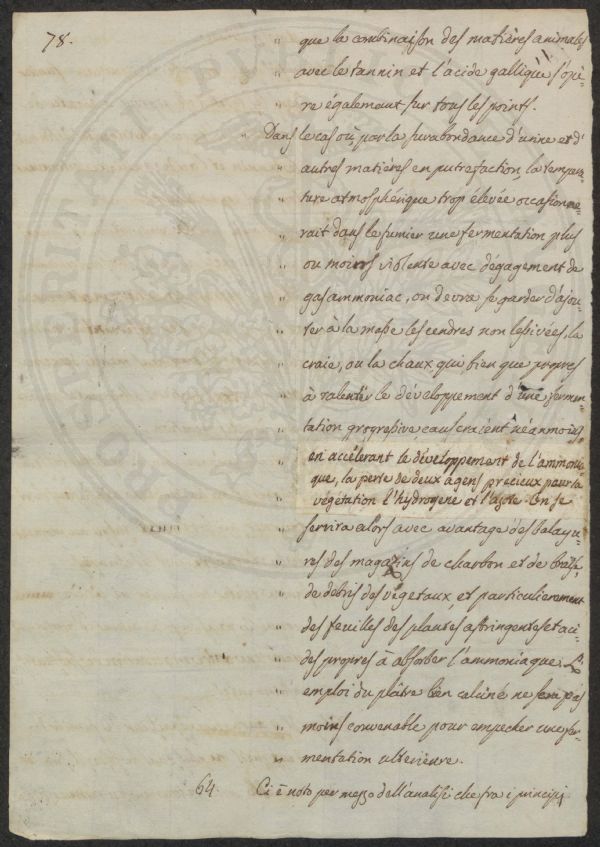 78.
" que la combinaison des matières animales
" avec le tannin et l'acide gallique s'opè=
" re également sur tous les points.
" Dans le cas où par la surabondance d'urine et d'
" autres matières en putrefaction, la tempera=
" ture atmosphérique trop élevée occasionne=
" rait dans le fumier une fermentation plus
" ou moins violente avec dégagement de
" gas ammoniac, on devra se garder d'ajou=
" ter à la masse les cendres non lessivées, la
" craie, ou la chaux qui bien que propres
" à ralentir le développement d'une fermen=
" tation progressive, causeraient néanmoins,
" en accélerant le développement de l'ammonia=
" que, la perte de deux agens précieux pour la
" végétation l'hydrogene et l'azote. On se
" servira alors avec avantage des balayu=
" res des magazins de charbon et de braise,
" de debris des végetaux, et particulierement
" des feuilles des plantes astringentes et aci=
" des propres à absorber l'ammoniaque. L'
" emploi du plâtre bien calciné ne sera pas
" moins convenable pour empecher une fer=
" mentation ulterieure.
64. Ci è noto per mezzo dell'analisi che fra i principj